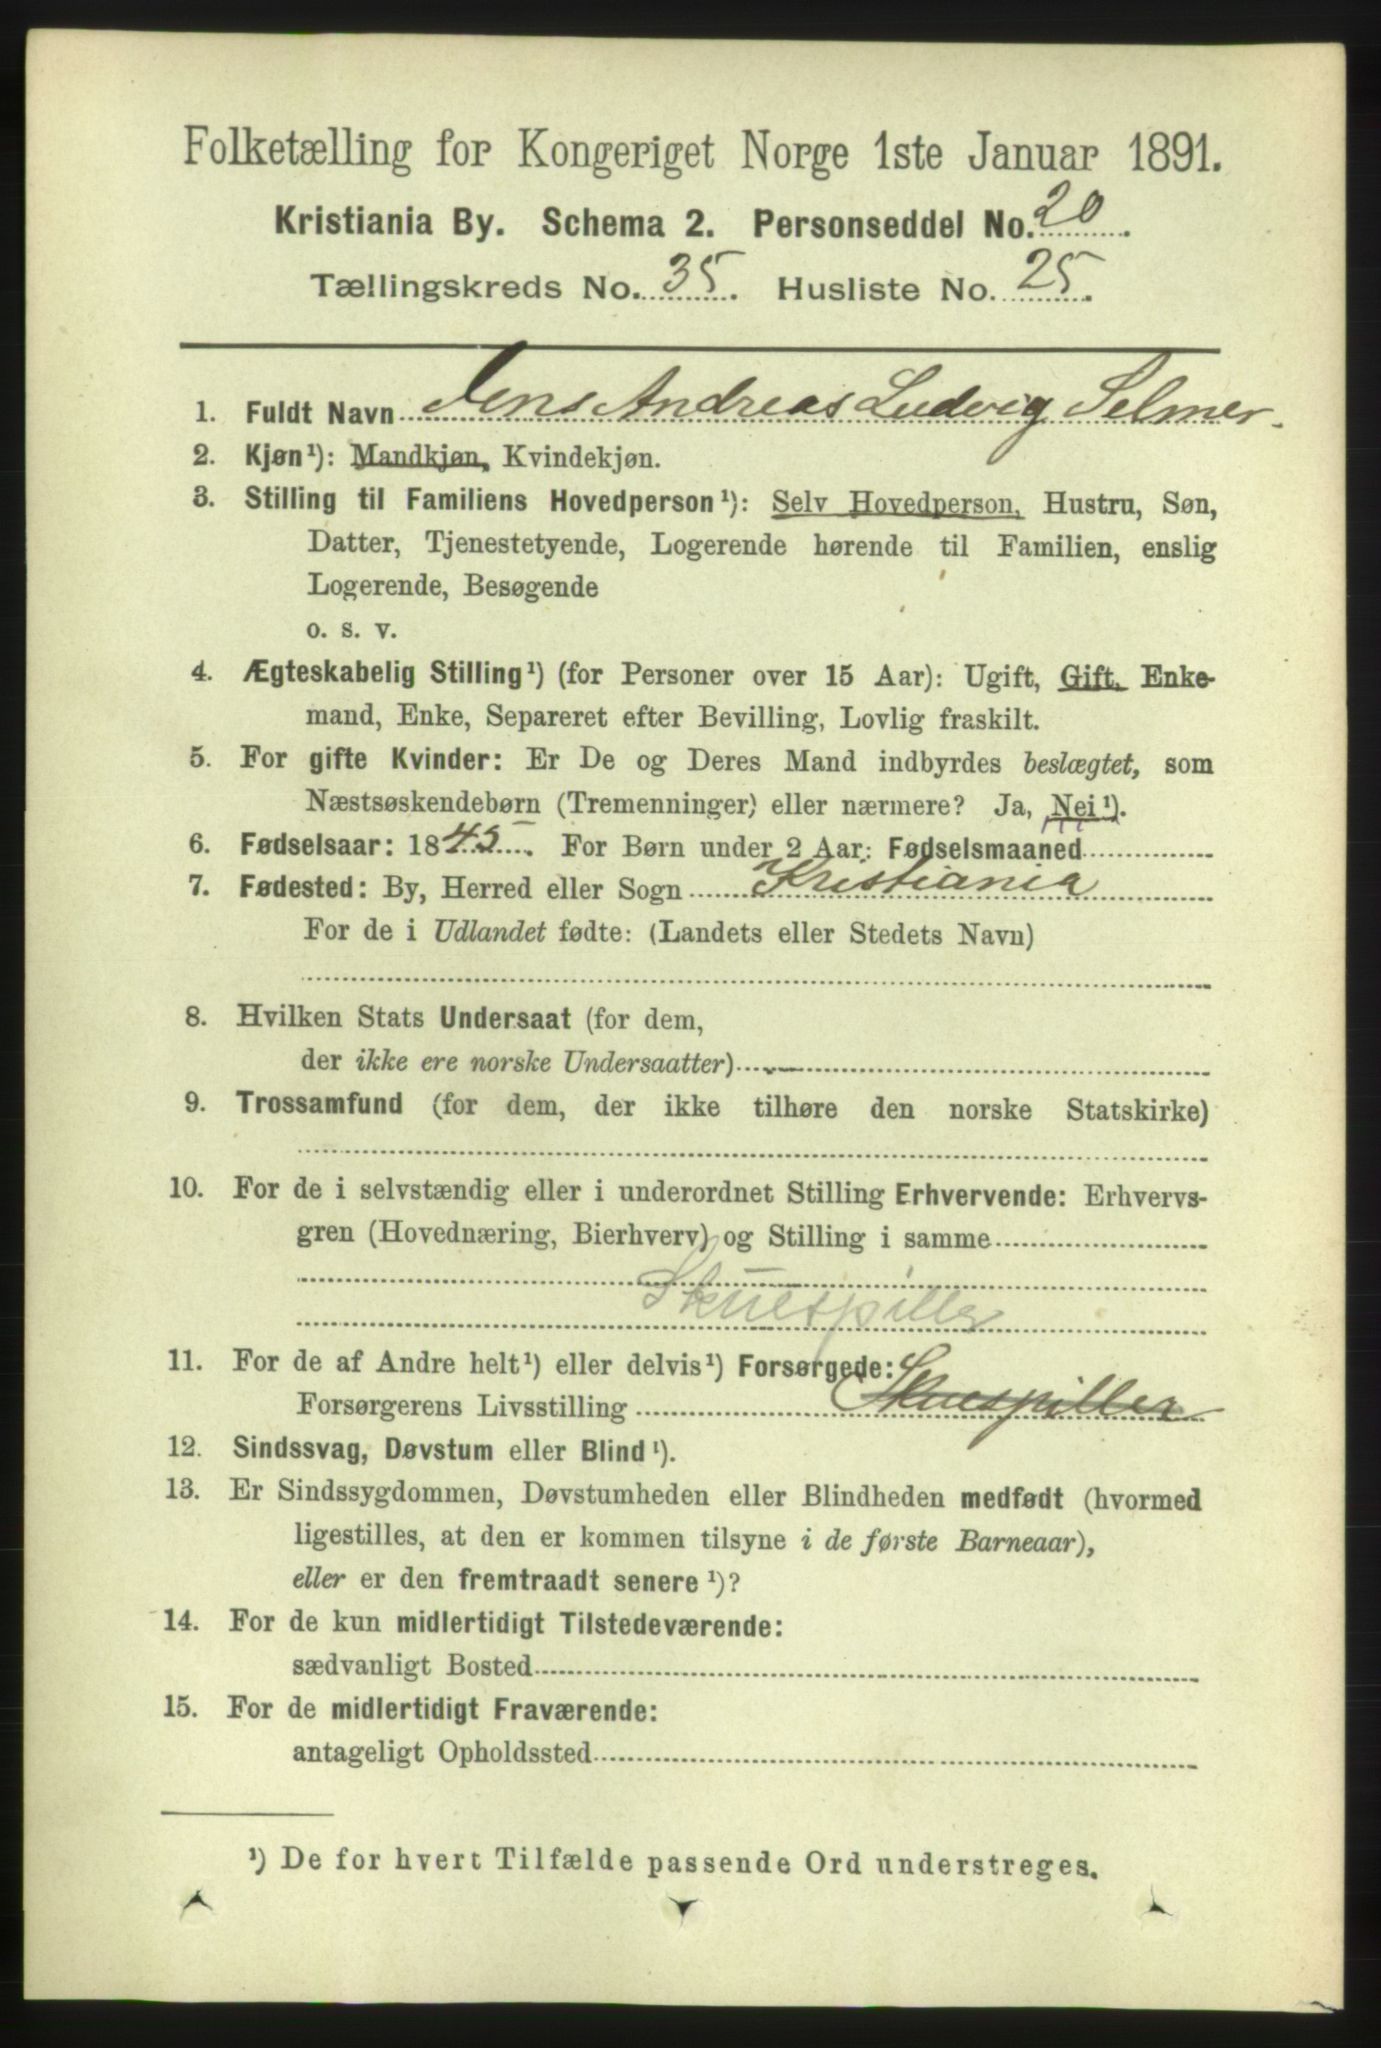 Folketælling for Kongeriget Norge 1ste Januar 1891.
Kristiania By. Schema 2. Personseddel No. 20.
Tællingskreds No. 35. Husliste No. 25.
1. Fuldt Navn Jens Andreas Ludvig Selmer.
2. Kjøn¹): Mandkjøn, Kvindekjøn.
3. Stilling til Familiens Hovedperson¹): Selv Hovedperson, Hustru, Søn,
Datter, Tjenestetyende, Logerende hørende til Familien, enslig
Logerende, Besøgende
o. s. v.
4. Ægteskabelig Stilling¹) (for Personer over 15 Aar): Ugift, Gift, Enke-
mand, Enke, Separeret efter Bevilling, Lovlig fraskilt.
5. For gifte Kvinder: Er De og Deres Mand indbyrdes beslægtet, som
Næstsøskendebørn (Tremenninger) eller nærmere? Ja, Nei¹).
6. Fødselsaar: 1845. For Børn under 2 Aar: Fødselsmaaned
7. Fødested: By, Herred eller Sogn Kristiania
For de i Udlandet fødte: (Landets eller Stedets Navn)
8. Hvilken Stats Undersaat (for dem,
der ikke ere norske Undersaatter)
9. Trossamfund (for dem, der ikke tilhøre den norske Statskirke)
10. For de i selvstændig eller i underordnet Stilling Erhvervende: Erhvervs-
gren (Hovednæring, Bierhverv) og Stilling i samme
Skuespiller
11. For de af Andre helt¹) eller delvis¹) Forsørgede:
Forsørgerens Livsstilling Skuespiller
12. Sindssvag, Døvstum eller Blind¹).
13. Er Sindssygdommen, Døvstumheden eller Blindheden medfødt (hvormed
ligestilles, at den er kommen tilsyne i de første Barneaar),
eller er den fremtraadt senere¹)?
14. For de kun midlertidigt Tilstedeværende:
sædvanligt Bosted
15. For de midlertidigt Fraværende:
antageligt Opholdssted
¹) De for hvert Tilfælde passende Ord understreges.